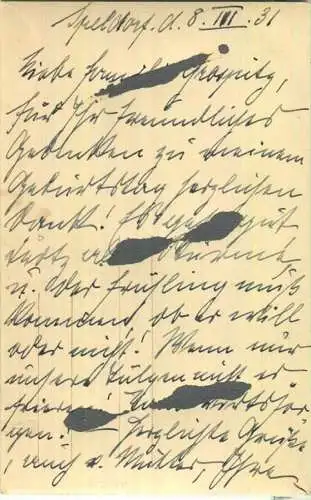 Speldorf. d. 8. III. 31
Liebe Familie
für Ihr freundliches
Gedenken zu meinem
Geburtstag herzlichen
Dank! Es gut
trotz Stürme
u. der Frühling muß
kommen, ob er will
oder nicht! Wenn nur
unsere Tulpen nicht er
frieren!
gen. Herzliche Grüße
, auch v. Mutter, Ihre